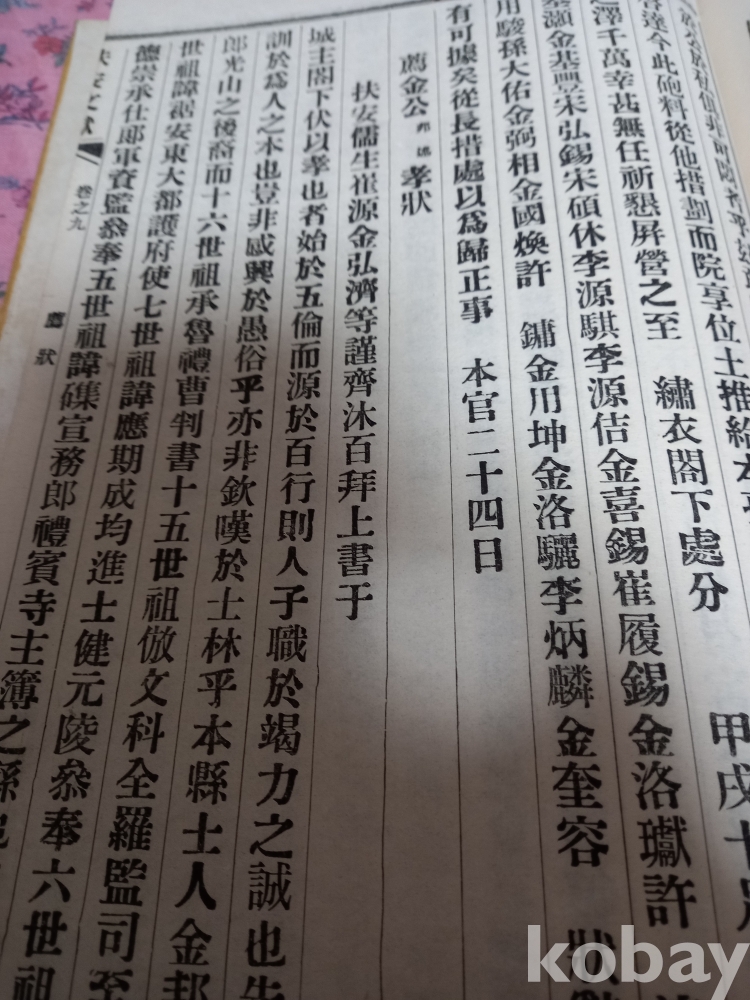 甲戌十月
達今此砲料從他措劃而院享位土推給本
之澤千萬幸甚無任祈懇屏營之至 繡衣閣下處分
泰灝金基豐宋弘錫宋碩休李源騏李源佶金喜錫崔履錫金洛瓛許
用駿孫大佑金弼相金國煥許 鏞金用坤金洛驪李炳麟金奎容 狀
有可據矣從長措處以爲歸正事 本官二十四日
薦金公邦 孝狀
扶安儒生崔源金弘濟等謹齊沐百拜上書于
城主閣下伏以孝也者始於五倫而源於百行則人子職於竭力之誠也
訓於爲人之本也豈非感興於愚俗乎亦非欽嘆於士林乎本縣士人金邦
郎光山之後裔而十六世祖承魯禮曹判書十五世祖倣文科全羅監司
世祖諱琚安東大都護府使七世祖諱應期成均進士健元陵叅奉六世祖
德崇承仕郎軍資監叅奉五世祖諱磼宣務郎禮賓寺主簿之孫
扶安文獻 卷之九 薦狀
kobay